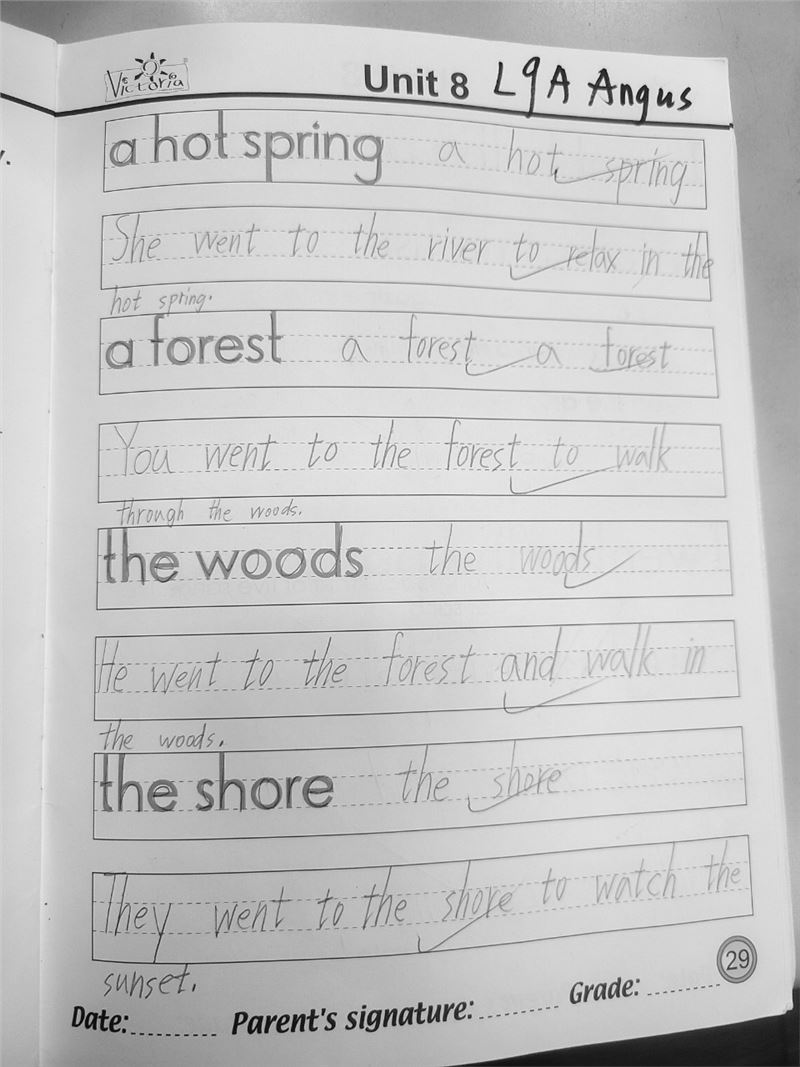 Victoria
Unit 8 L9A Angus
a hot spring a hot spring
She went to the river to relax in the
hot spring.
a forest a forest a forest
You went to the forest to walk
through the woods.
the woods the woods
He went to the forest and walk in
the woods.
the shore the shore
They went to the shore to watch the
sunset.
29
Date: Parent's signature: Grade: